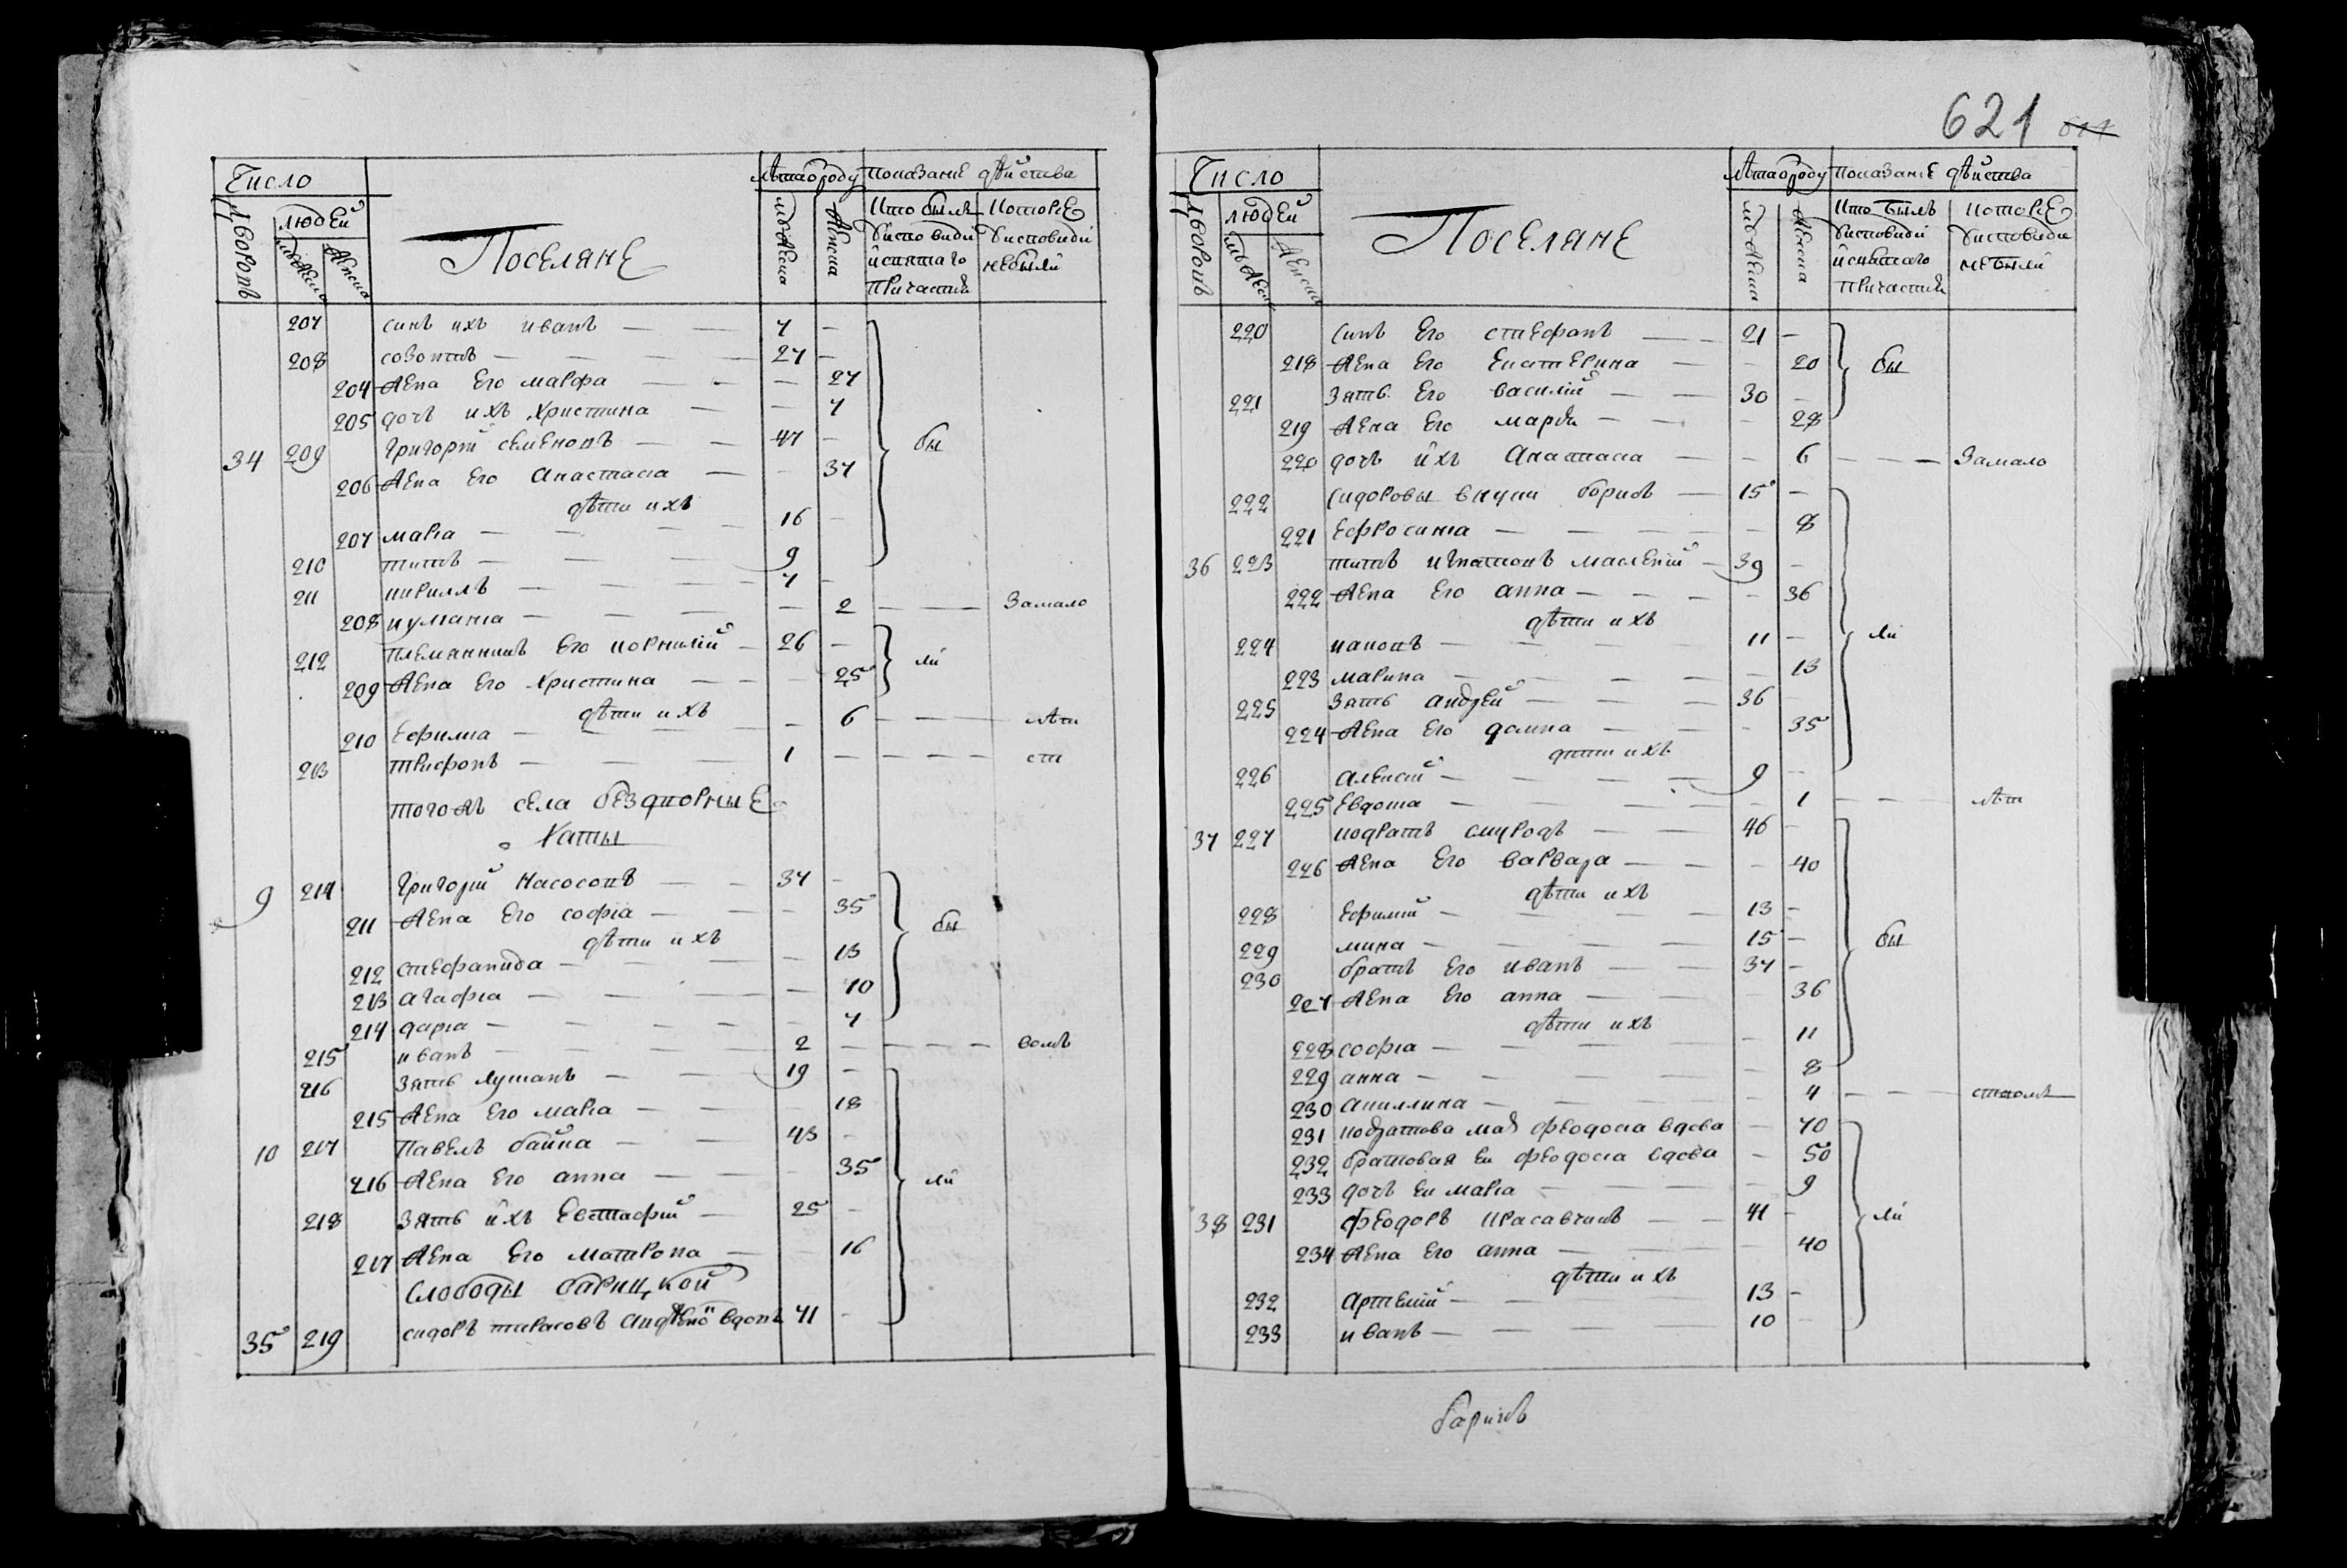 621
Число
Дворовъ
людей
мужеска
женска
Поселяне
лѣта от роду
мужеска
женска
показание действа
кто былъ у исповеди и святаго причастия
которые у исповеди не были
207 синъ ихъ иванъ — — 7 —
208 созонтъ — — — 27 —
204 жена Его марфа — — — 27
205 дочь ихъ христина — — 7
34 209 григорій семеновъ — — 47 — бы
206 жена Его Анастасіа — — 37
дѣти ихъ
207 маріа — — — 16 —
210 титъ — — — 9
211 кириллъ — — — 7 —
208 иулианіа — — — — 2 — — — Замало
212 племянникъ Его корнилій — 26 — ли
209 жена Его христина — — — 25
дѣти ихъ
210 Ефиміа — — — — 6 — — — лѣт
213 трифонъ — — — 1 — — — — ст
тогожъ села бездворные
хаты
9 214 григорій Насосовъ — — 37 —
211 жена Его софіа — — — 35 бы
дѣти ихъ
212 стефанида — — — — 13
213 агафіа — — — — 10
214 даріа — — — — 7
215 иванъ — — — 2 — — — — вомъ
216 зять лукианъ — — 19 —
215 жена Его маріа — — — 18
10 217 павелъ байка — — 43 —
216 жена Его анна — — — 35 ли
218 зять ихъ Евстафій — 25 —
217 жена Его матрона — — 16
слободы барицкой
35 219 сидоръ тарасовъ вдовъ 71 —
Число
Дворовъ
людей
мужеска
женска
Поселяне
лѣта от роду
мужеска
женска
показание действа
кто былъ у исповеди и святаго причастия
которые у исповеди не были
220 синъ Его стефанъ — — 21 —
218 жена Его Екатерина — — 20 бы
221 зять Его василій — — 30 —
219 жена Его — — — 28
220 дочь ихъ Анастасіа — — 6 — — — Замало
222 сидоровы внуки борисъ — 15 —
221 Ефросиніа — — — — 8
36 223 титъ игнатовъ масленій — 39 —
222 жена Его анна — — — — 36
дѣти ихъ
224 кононъ — — — 11 — ли
223 марина — — — — 13
225 зять андрей — — — 36 —
224 жена Его домна — — — 35
дѣти ихъ
226 алексій — — — — 9 —
225 Евдокіа — — — — 1 — — лѣт
37 227 кодратъ — — 46 —
226 жена Его варвара — — — 40
дѣти ихъ
228 Ефимій — — — — 13 —
229 мина — — — — 15 — бы
230 братъ Его иванъ — — 37 —
227 жена Его анна — — 36
дѣти ихъ
228 софіа — — — — 11
229 анна — — — — 8
230 акилина — — — — 4 — — —
231 кодратова феодосіа вдова — 70
232 братовая Еи феодосіа вдова — 50
233 дочь Еи маріа — — — 9
38 231 феодоръ — — 41 — ли
234 жена Его анна — — — 40
дѣти ихъ
232 артемій — — — 13 —
233 иванъ — — — — 10 —